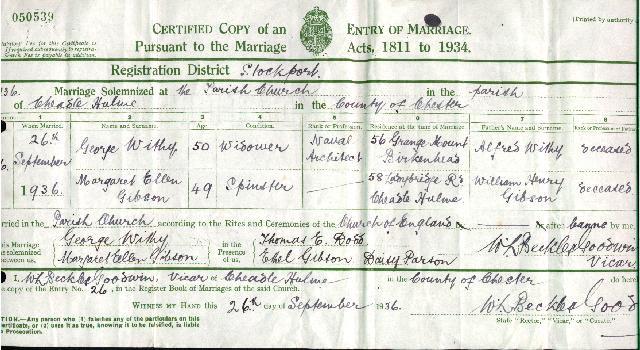 050539
CERTIFIED COPY of an ENTRY OF MARRIAGE.
[Printed by authority
Pursuant to the Marriage Acts, 1811 to 1934.
Registration District Stockport.
936. Marriage Solemnized at the Parish Church in the Parish
of Cheadle Hulme in the County of Chester
1 2 3 4 5 6 7 8
When Married. Name and Surname. Age Condition. Rank or Profession. Residence at the time of Marriage Father's Name and Surname. Rank or Profession of Father
26th September 1936. George Withy 50 Widower Naval Architect 56 Grange Mount Birkenhead Alfred Withy deceased
Margaret Ellen Gibson 49 Spinster 58 Rd Cheadle Hulme William Henry Gibson deceased
arried in the Parish Church according to the Rites and Ceremonies of the Church of England or after banns by me,
This Marriage was solemnized between us, George Withy Margaret Ellen Gibson in the Presence of us, Thomas E. Ethel Gibson Daisy Parson W L Beckles Goodwin Vicar
I, W L Beckles Goodwin, Vicar of Cheadle Hulme in the County of Chester do here
copy of the Entry No. 26, in the Register Book of Marriages of the said Church.
WITNESS MY HAND this 26th day of September 1936. W L Beckles Good
State "Rector," "Vicar," or "Curate."
TION.—Any person who (1) falsifies any of the particulars on this
certificate, or (2) uses it as true, knowing it to be falsified, is liable
to Prosecution.